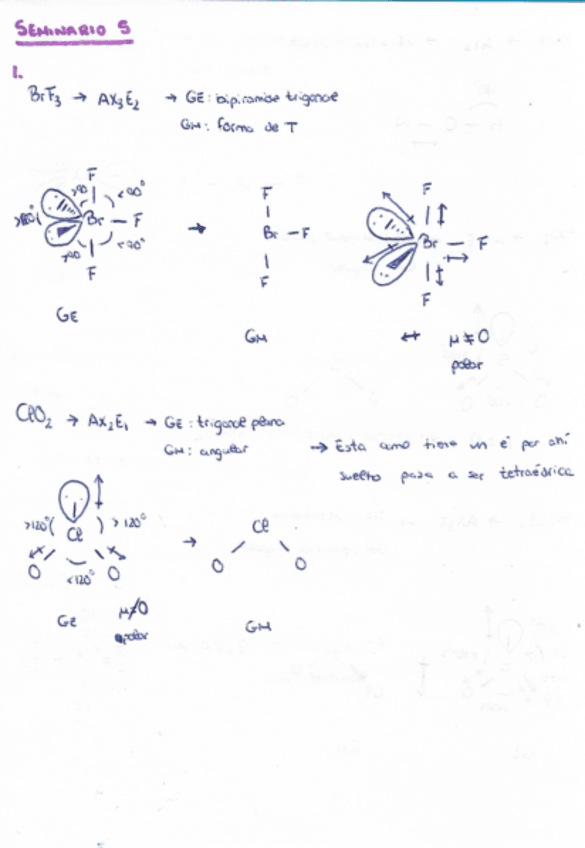 SEMINARIO 5
1.
BrF3 → AX3E2 → GE: bipiramide trigonal
GM: forma de T
F
>90 <90°
>120° Br — F
>90 <90°
F
GE
→
F
Br — F
F
GM
F
Br — F
F
↔ μ ≠ 0
polar
ClO2 → AX2E1 → GE: trigonal plana
GM: angular
→ Esta como tiene un e⁻ por ahí
suelto pasa a ser tetraédrica
>120° Cl >120°
O <120° O
GE
μ≠0
polar
→
Cl
O O
GM